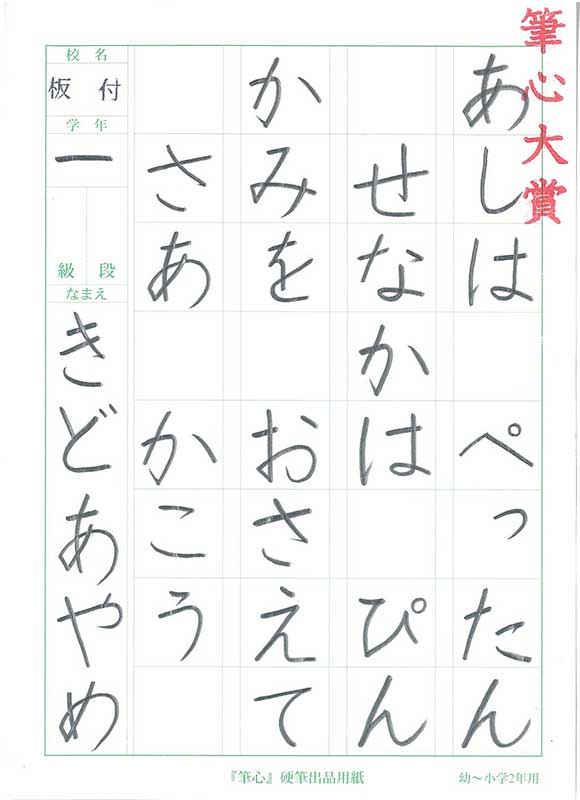 筆心大賞
あしは ぺったん
せなかは ぴん
かみを おさえて
さあ かこう
校名
板付
学年
一
級段
なまえ
きどあやめ
『筆心』硬筆出品用紙
幼～小学2年用